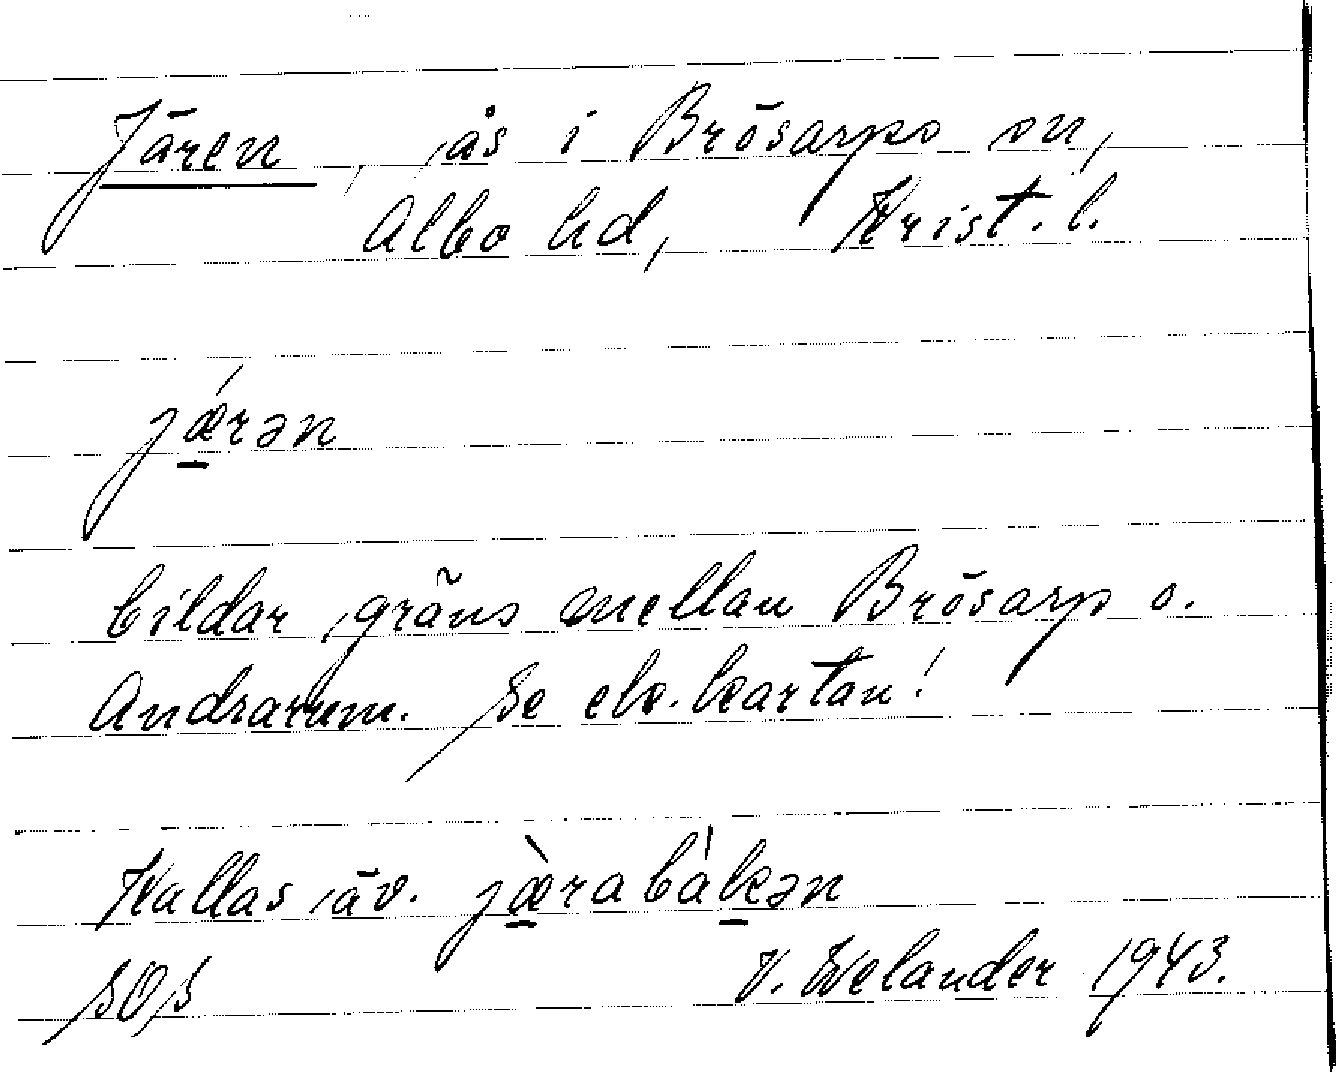 Jären, ås i Brösarps sn,
Albo hd, Krist. l.
jǽ̱rən
bildar gräns mellan Brösarp o.
Andrarum. Se ek. kartan!
Kallas äv. jæ̱̀rabàḵən
SOS V. Welander 1943.